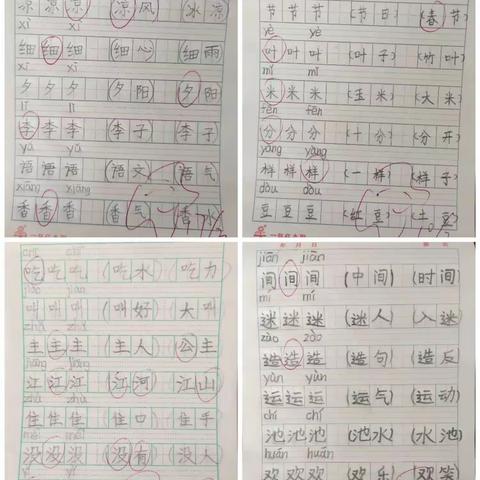 凉凉凉(凉风)(冰凉)
xì xì
细细细(细心)(细雨)
xī xī
夕夕夕(夕阳)(夕阳)
lǐ lǐ
李李李(李子)(李子)
yǔ yǔ
语语语(语文)(语气)
xiāng xiāng
香香香(香气)(香
节节节(节日)(春节)
yè yè
叶叶叶(叶子)(竹叶)
mǐ mǐ
米米米(玉米)(大米)
fēn fēn
分分分(十分)(分开)
yàng yàng
样样样(一样)(样子)
dòu dòu
豆豆豆(红豆)(土豆)
chī chī
吃吃吃(吃水)(吃力)
jiào jiào
叫叫叫(叫好)(大叫)
zhǔ zhǔ
主主主(主人)(公主)
jiāng jiāng
江江江(江河)(江山)
zhù zhù
住住住(住口)(住手)
méi méi
没没没(没有)(没人)
jiān jiān
间间间(中间)(时间)
mí mí
迷迷迷(迷人)(入迷)
zào zào
造造造(造句)(造反)
yùn yùn
运运运(运气)(运动)
chí chí
池池池(池水)(水池)
huān huān
欢欢欢(欢乐)(欢笑)